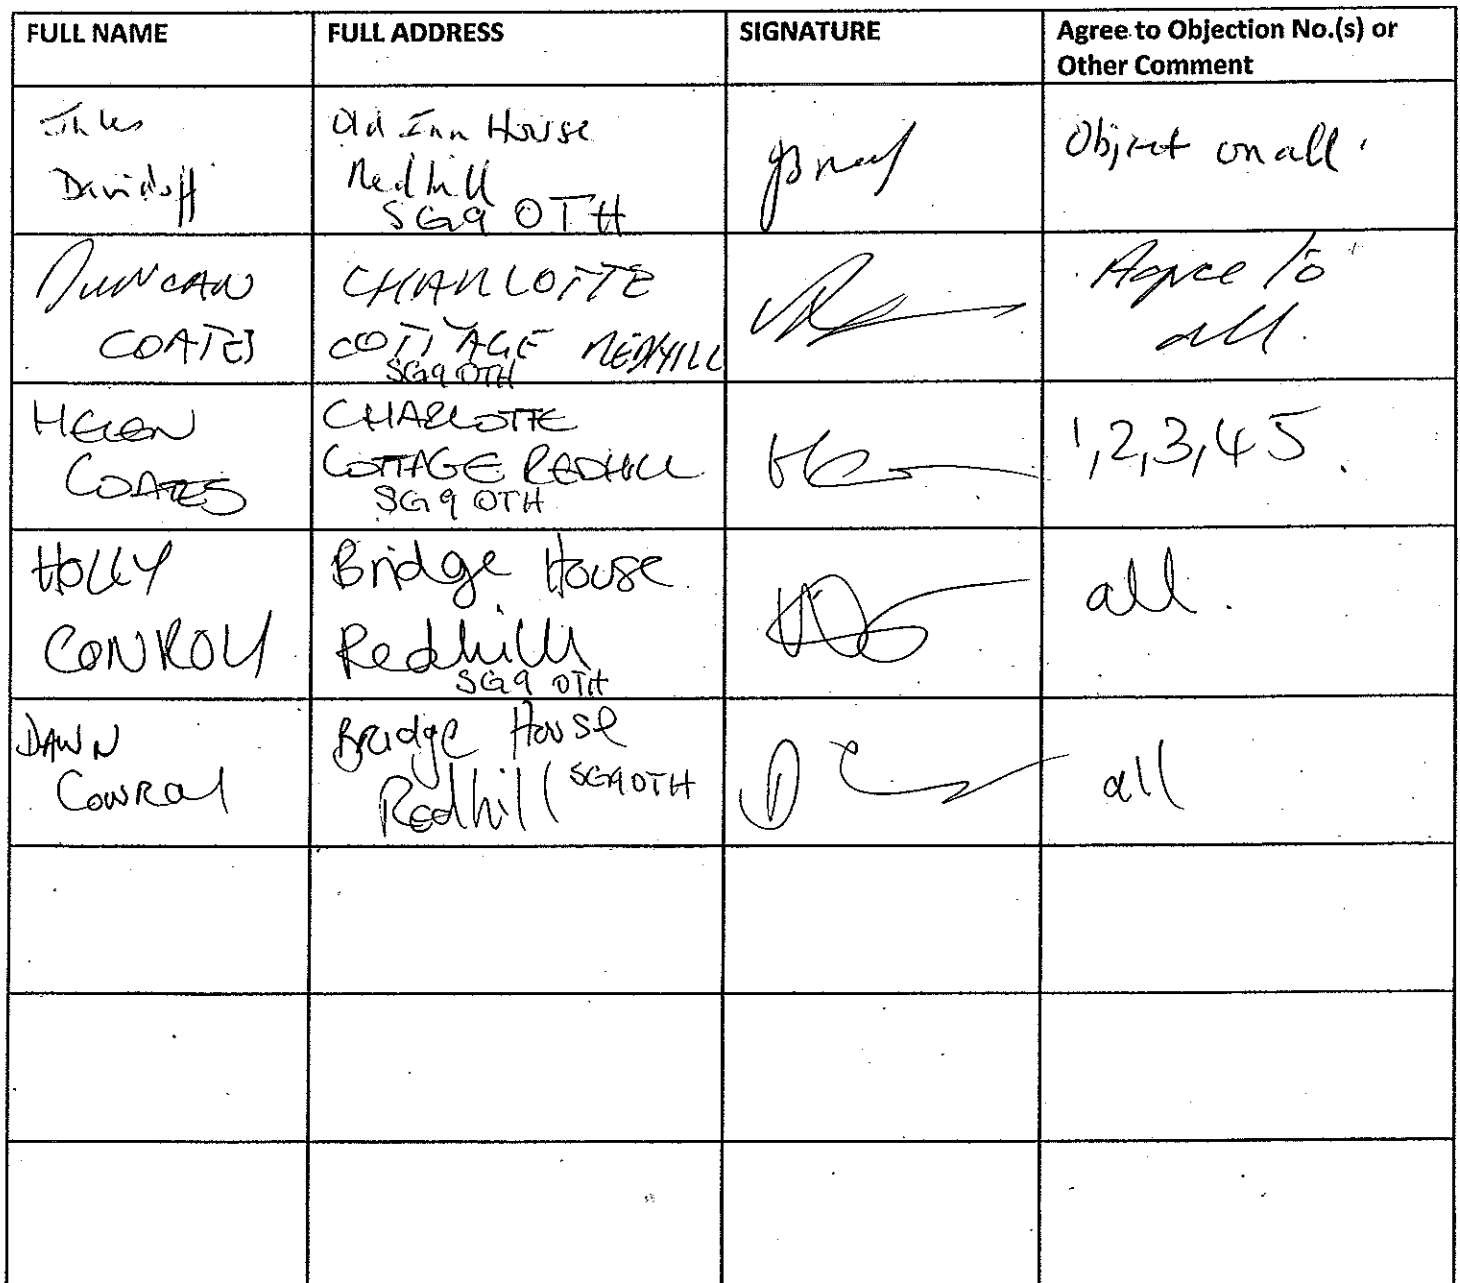 FULL NAME
FULL ADDRESS
SIGNATURE
Agree to Objection No.(s) or
Other Comment
Jules
Davidoff
Old Inn House
Redhill
SG9 0TH
Object on all.
DUNCAN
COATES
CHARLOTTE
COTTAGE REDHILL
SG9 0TH
Agree to
all.
HELEN
COATES
CHARLOTTE
COTTAGE REDHILL
SG9 0TH
1,2,3,4 5.
HOLLY
CONROY
Bridge House
Redhill
SG9 0TH
all.
DAWN
Conroy
Bridge House
Redhill SG9 0TH
all